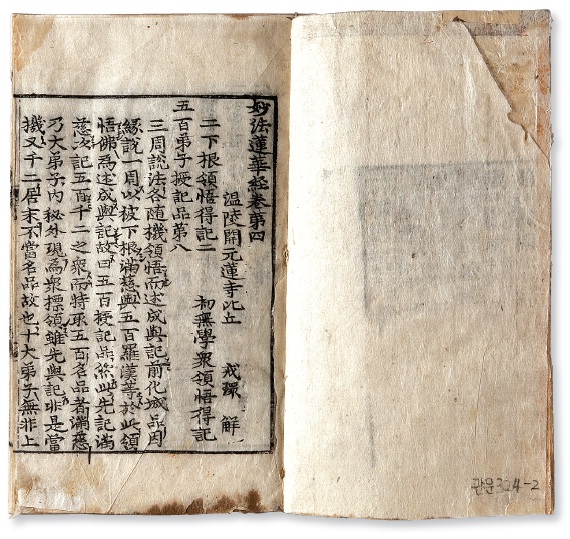 妙法蓮華経卷第四
温陵開元蓮寺比丘 戒環 解
二下根領悟得記二 初無學衆領悟得記
五百弟子授記品第八
三周說法各随機領悟而述成與記前化城品因
緣說一周以被下根滿慈與五百羅漢等於此領
悟佛為述成與記故曰五百授記品然此先記滿
慈次記五百千二之衆而特取五百名品者滿慈
乃大弟子內秘外現為衆標領雖先與記非是當
機又千二居末不當名品故也十大弟子無非上
관운324-2